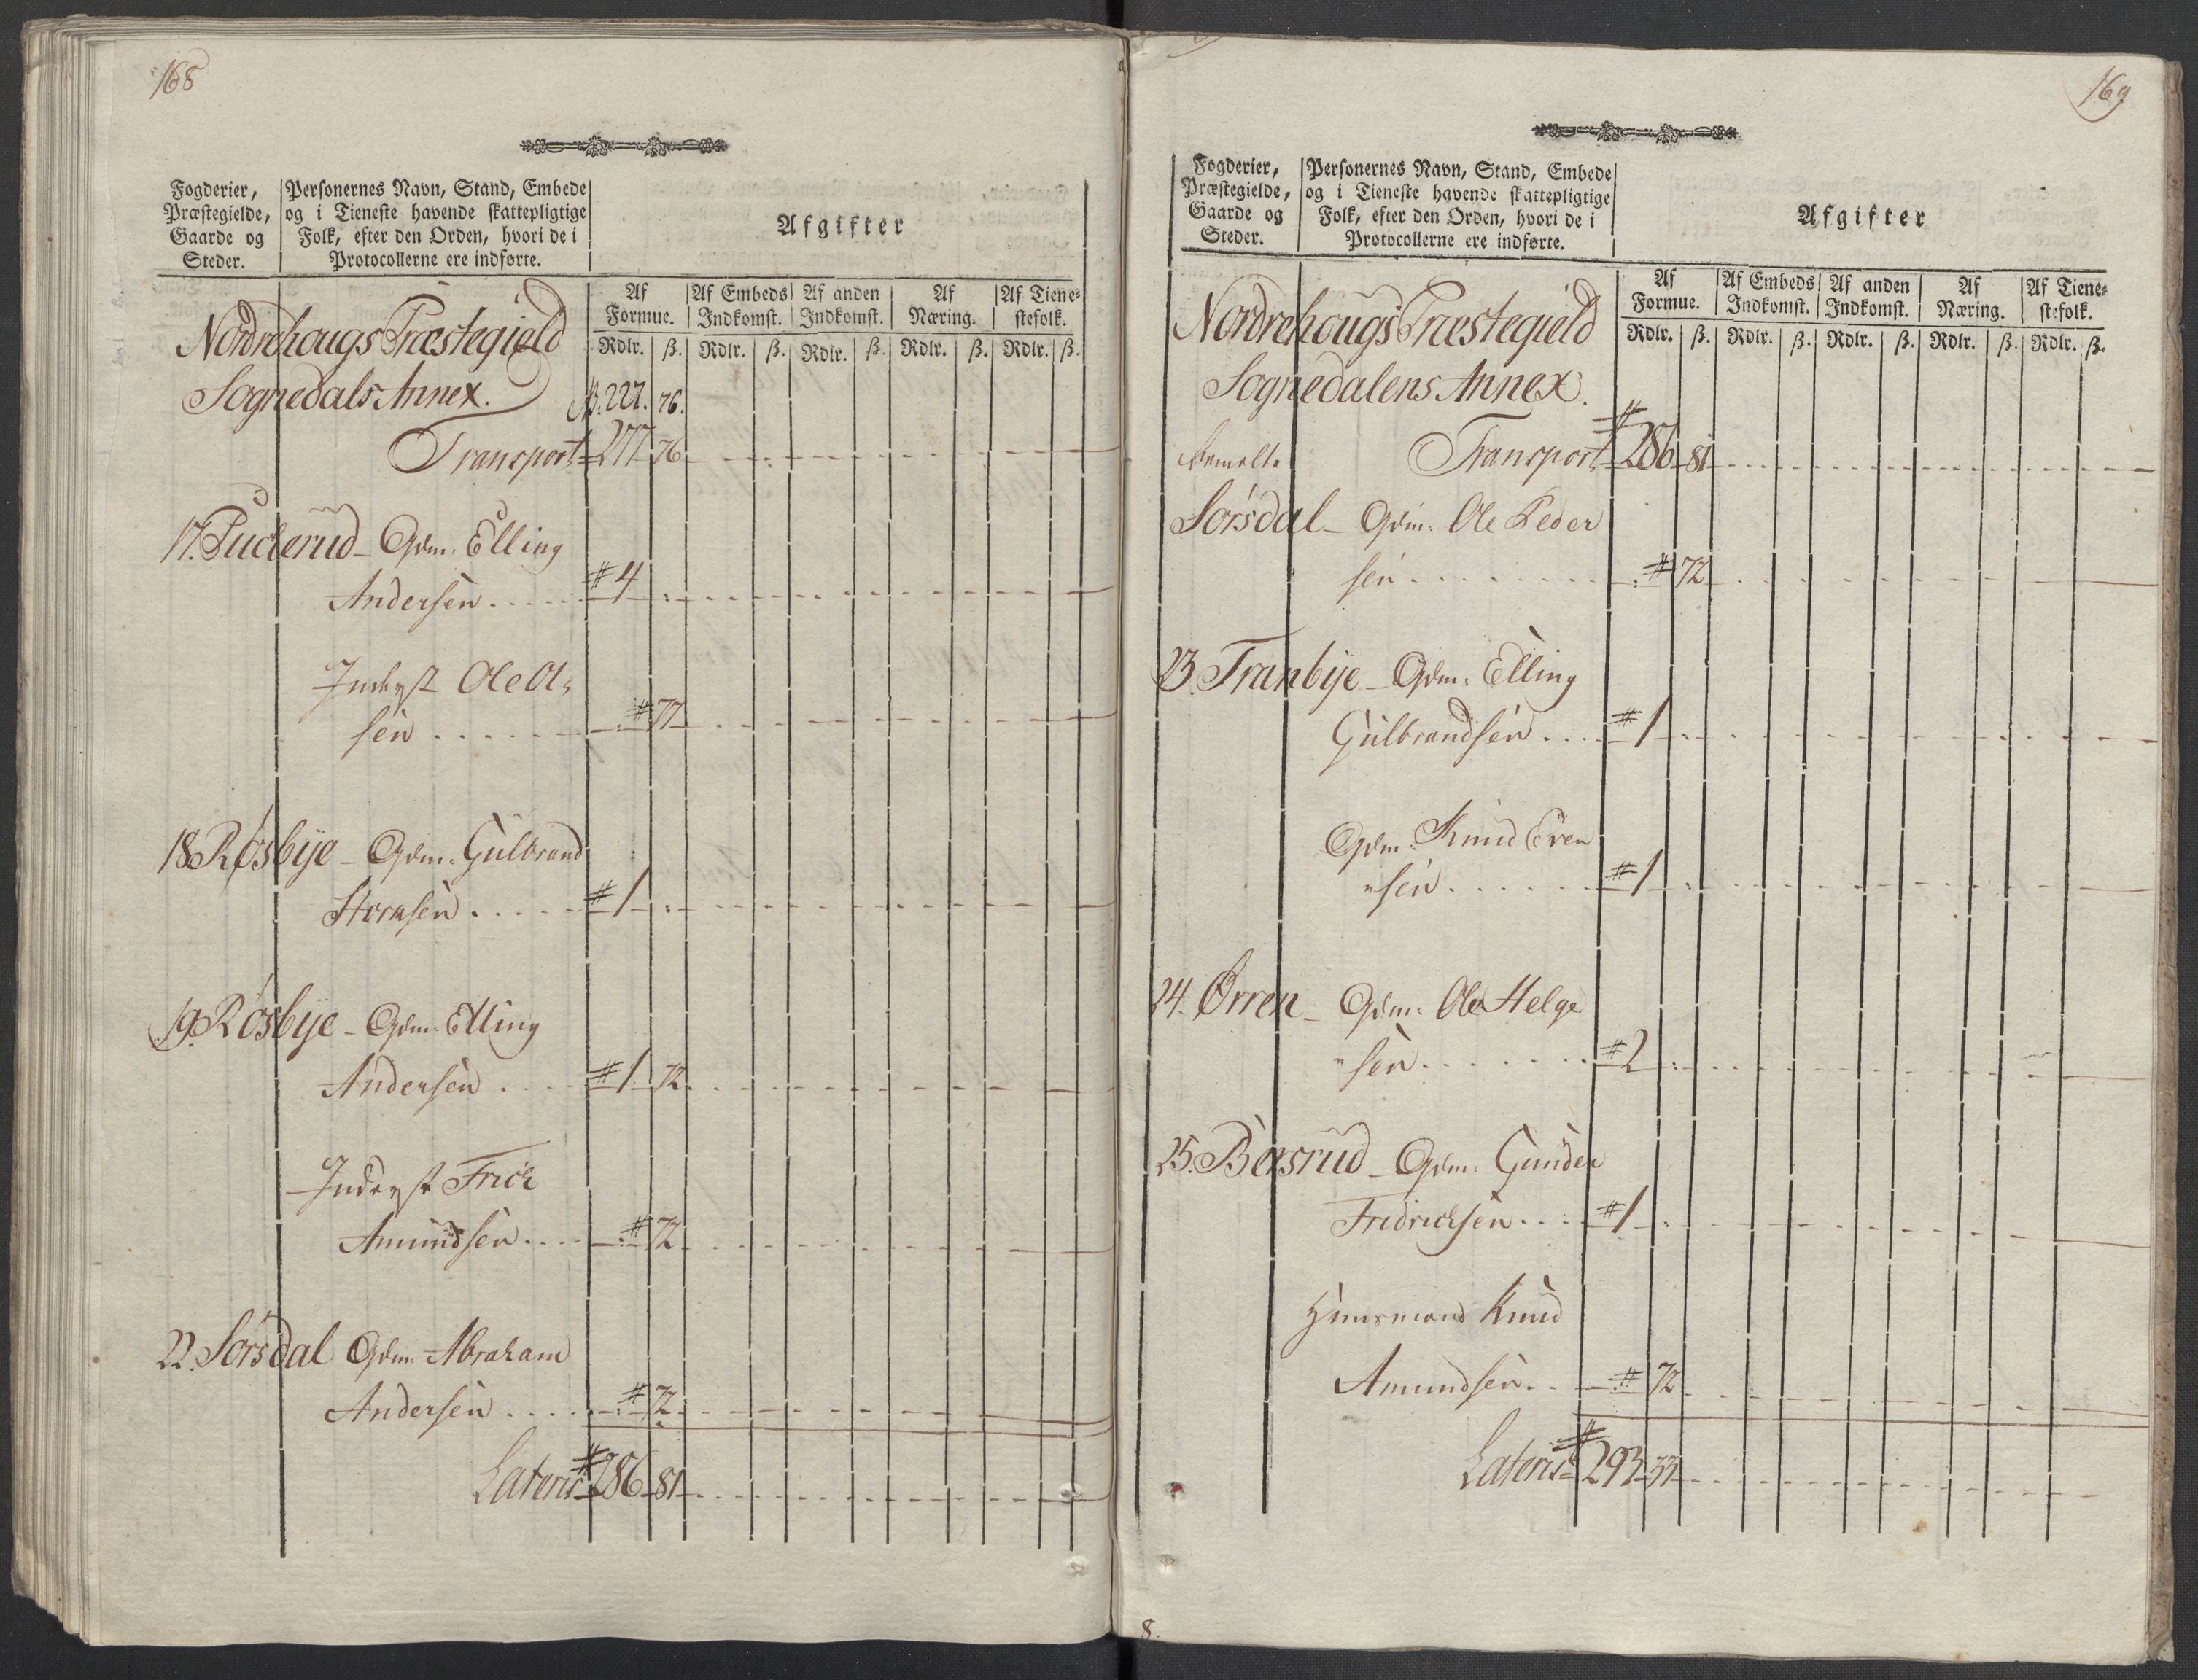 168
Fogderier,
Præstegielde,
Gaarde og
Steder.
Personernes Navn, Stand, Embede
og i Tieneste havende skattepligtige
Folk, efter den Orden, hvori de i
Protocollerne ere indførte.
Afgifter
Af Formue. Af Embeds Indkomst. Af anden Indkomst. Af Næring. Af Tienestefolk.
Rdlr. ß. Rdlr. ß. Rdlr. ß. Rdlr. ß. Rdlr. ß.
Nordrehougs Præstegield
Sognedals Annex. 227. 76.
Transport 277 76
17. Guderud - Gdm: Elling
Andersen # 4
Inderst Ole Ol-
sen # 77
18 Røsbye - Gdm: Gulbrand
# 1
19. Røsbye - Gdm: Elling
Andersen # 1 72
Inderst Frich
Amundsen # 72
22. Sørsdal Gdm: Abraham
Andersen # 72
Lateris # 286 81
169
Fogderier,
Præstegielde,
Gaarde og
Steder.
Personernes Navn, Stand, Embede
og i Tieneste havende skattepligtige
Folk, efter den Orden, hvori de i
Protocollerne ere indførte.
Afgifter
Af Formue. Af Embeds Indkomst. Af anden Indkomst. Af Næring. Af Tienestefolk.
Rdlr. ß. Rdlr. ß. Rdlr. ß. Rdlr. ß. Rdlr. ß.
Nordrehougs Præstegield
Sognedalens Annex.
Bemelte Transport # 286 81
Sørsdal - Gdm: Ole Peder
sen # 72
23. Tranbye - Gdm: Elling
Gulbrandsen # 1
Gdm: Knud Even
"sen # 1
24. Ørren - Gdm: Ole Helge
"sen # 2
25. Bersrud - Gdm: Gunder
Fridrichsen # 1
Huusmand Knud
Amundsen # 72
Lateris # 293 33
8.